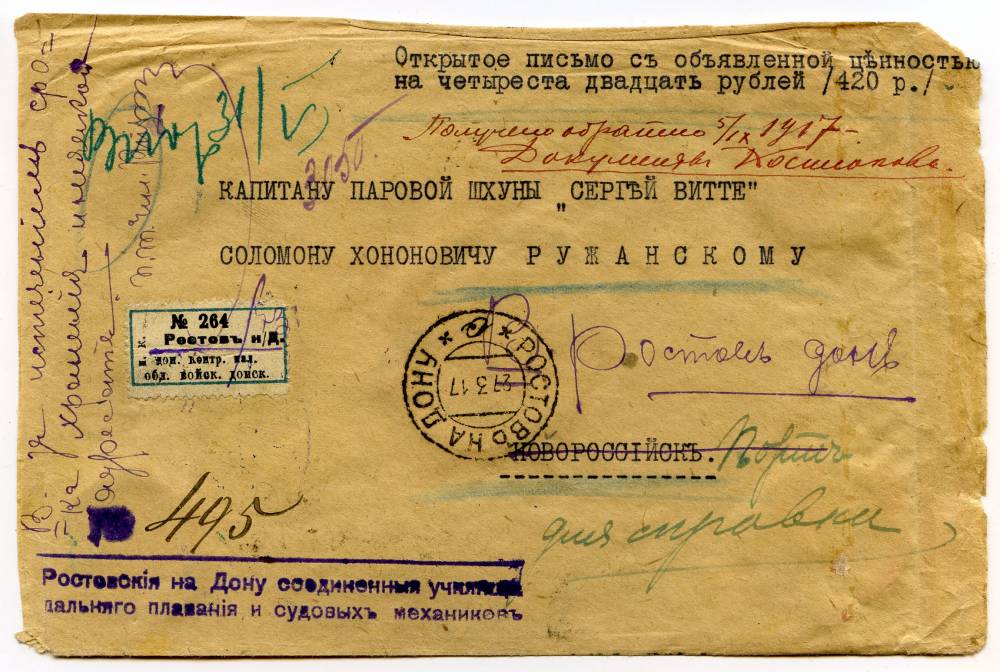 Открытое письмо съ объявленной цѣнностью
на четыреста двадцать рублей /420 р./
Получено обратно 5/IX 1917-
Документы
КАПИТАНУ ПАРОВОЙ ШХУНЫ "СЕРГѢЙ ВИТТЕ"
СОЛОМОНУ ХОНОНОВИЧУ РУЖАНСКОМУ
31/V
№ 264
Ростовъ н/Д.
обл. войск. донск.
РОСТОВЪ НА ДОНУ
27.3.17
Ростовъ дону
НОВОРОССІЙСКЪ. Портъ
для справки
В- за истеченіемъ сро=
=ка храненія
адресатъ
495
Ростовскія на Дону соединенныя училища
дальняго плаванія и судовыхъ механиковъ